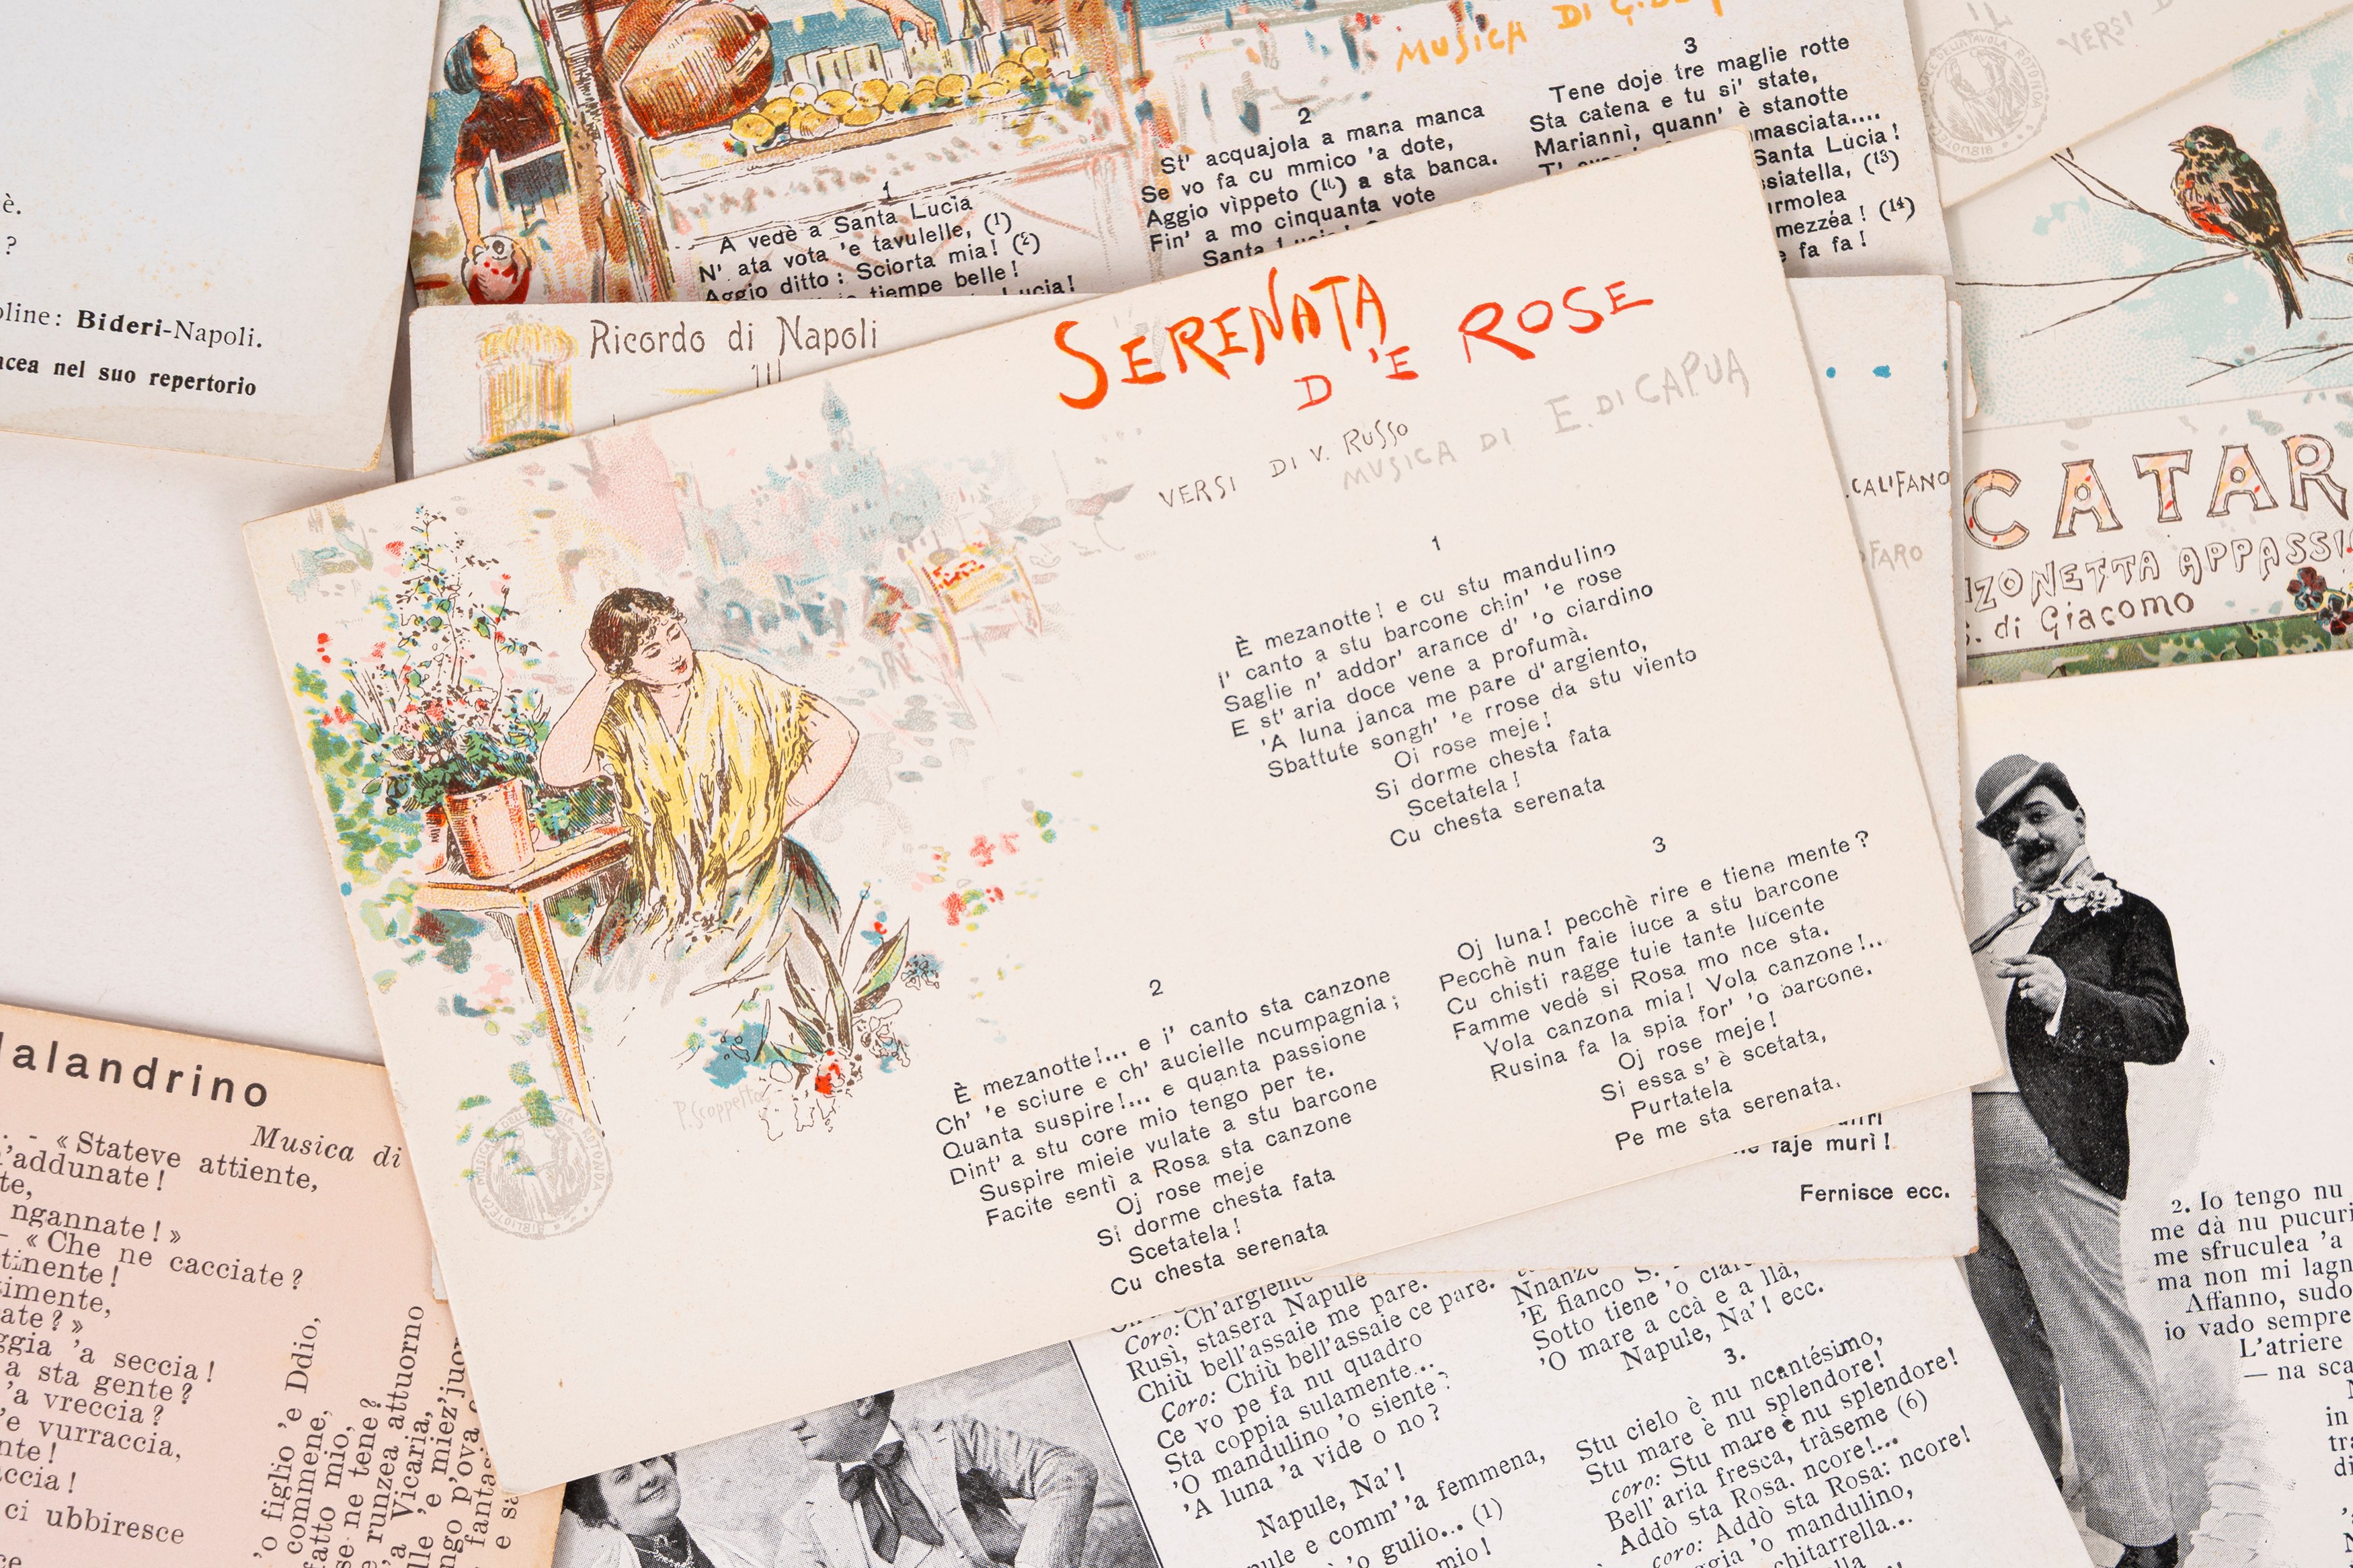 MUSICA DI
1
A vedè a Santa Lucia
N' ata vota 'e tavulelle, (1)
Aggio ditto : Sciorta mia! (2)
tiempe belle!
Lucia!
2
St' acquajola a mana manca
Se vo fa cu mmico 'a dote,
Aggio vìppeto (10) a sta banca.
Fin' a mo cinquanta vote
Santa
3
Tene doje tre maglie rotte
Sta catena e tu si' state,
Mariannì, quann' è stanotte
mmasciata....
Santa Lucia!
ssiatella, (13)
urmolea
mezzéa! (14)
e fa fa!
IL
VERSI
è.
?
oline: Bideri-Napoli.
acea nel suo repertorio
Ricordo di Napoli
SERENATA
D 'E ROSE
VERSI DI V. RUSSO
MUSICA DI E. DI CAPUA
1
È mezanotte! e cu stu mandulino
I' canto a stu barcone chin' 'e rose
Saglie n' addor' arance d' 'o ciardino
E st' aria doce vene a profumà.
'A luna janca me pare d' argiento,
Sbattute songh' 'e rrose da stu viento
Oi rose meje!
Si dorme chesta fata
Scetatela!
Cu chesta serenata
2
È mezanotte!... e i' canto sta canzone
Ch' 'e sciure e ch' aucielle ncumpagnia;
Quanta suspire!... e quanta passione
Dint' a stu core mio tengo per te.
Suspire mieie vulate a stu barcone
Facite sentì a Rosa sta canzone
Oj rose meje
Si dorme chesta fata
Scetatela!
Cu chesta serenata
3
Oj luna! pecchè rire e tiene mente?
Pecchè nun faie luce a stu barcone
Cu chisti ragge tuie tante lucente
Famme vedé si Rosa mo nce sta.
Vola canzona mia! Vola canzone!..
Rusina fa la spia for' 'o barcone.
Oj rose meje!
Si essa s' è scetata,
Purtatela
Pe me sta serenata.
P. Scoppetta
.CALIFANO
FARO
CATAR
NZONETTA APPASSI
S. di Giacomo
faje murì!
Fernisce ecc.
alandrino
Musica di
- «Stateve attiente,
'addunate!
te,
ngannate!»
- «Che ne cacciate?
timente!
timente,
ate?»
ggia 'a seccia!
a sta gente?
'a vreccia?
'e vurraccia,
nte!
accia!
ci ubbiresce
'o figlio 'e Ddio,
commene,
fatto mio,
se ne tene?
e runzea attuorno
'a Vicaria,
lle 'e miez'juor
ngo p'ova
fantasi
e sa
Ch'argiento
Coro: Ch'argiento
Rusì, stasera Napule
Chiù bell'assaie me pare.
Coro: Chiù bell'assaie ce pare.
Ce vo pe fa nu quadro
Sta coppia sulamente...
'O mandulino 'o siente?
'A luna 'a vide o no?
Napule, Na'!
pule e comm' 'a femmena,
'o gulio... (1)
mio!
Nnanze S.
'E fianco S.
Sotto tiene 'o clar
'O mare a ccà e a llà,
Napule, Na'! ecc.
3.
Stu cielo è nu ncantésimo,
Stu mare è nu splendore!
coro: Stu mare è nu splendore!
Bell' aria fresca, tràseme (6)
Addò sta Rosa. ncore!...
coro: Addò sta Rosa: ncore!
ggia 'o mandulino,
chitarrella...
2. Io tengo nu
me dà nu pucuri
me sfruculea 'a
ma non mi lagn
Affanno, sudo
io vado sempre
L'atriere
— na sca
in
tra
di